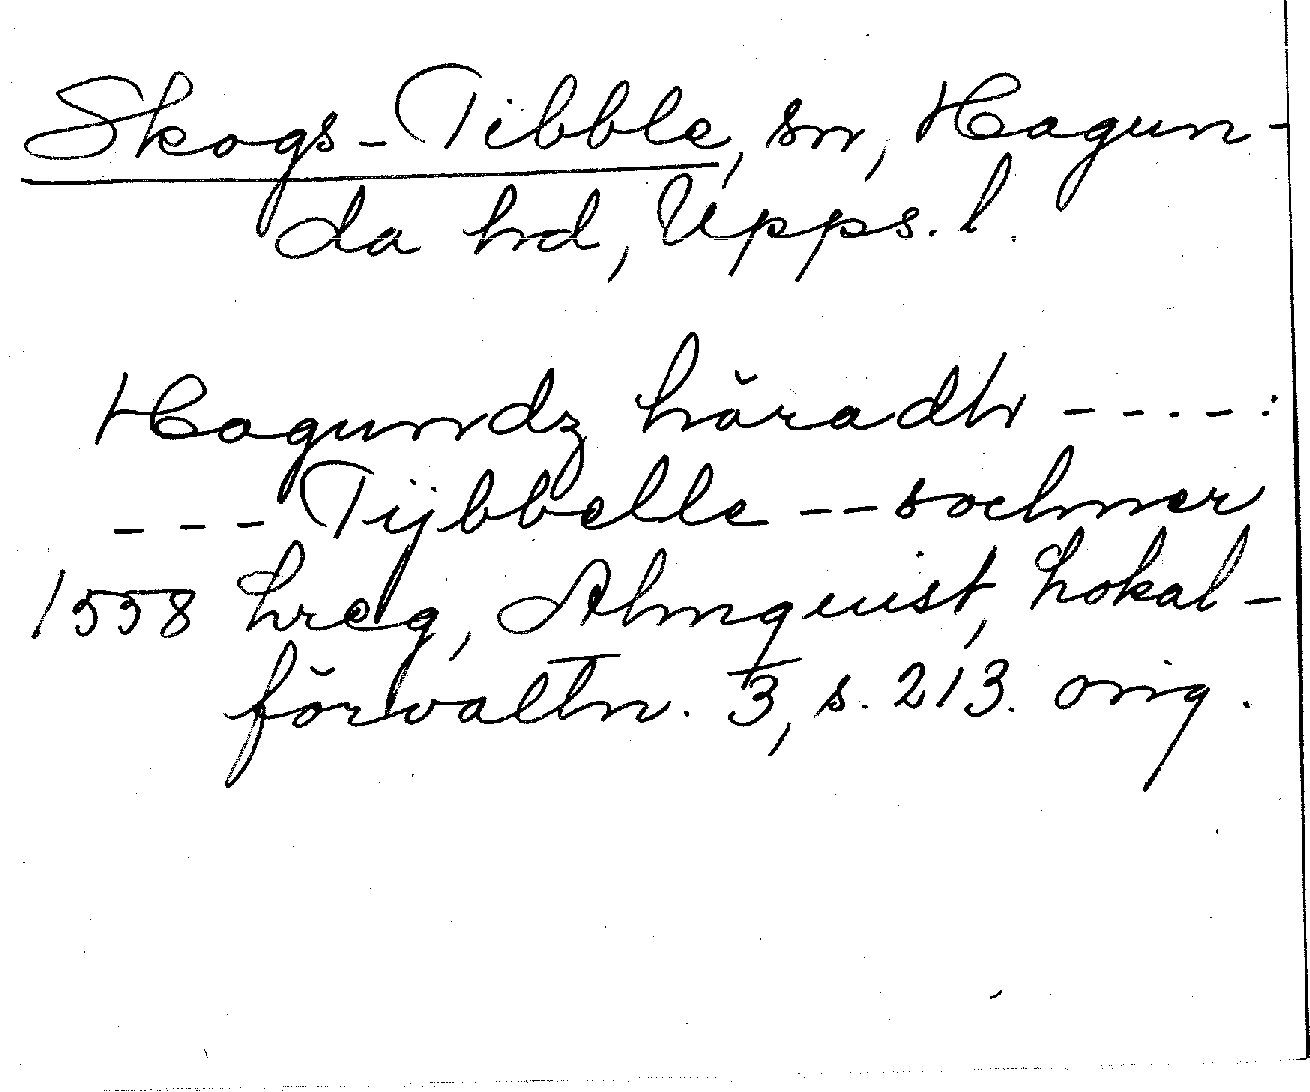 Skogs-Tibble, sn, Hagun-
da hrd, Upps. l.
Hagundz häradh - - - - :
- - - Tijbbelle - - sochner
1558 hreg, Almquist, Lokal-
förvaltn. 3, s. 213. orig.